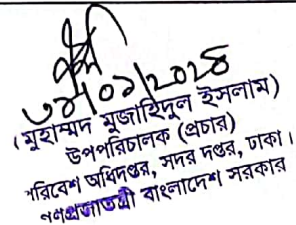 ৩১/০১/২০২৪
(মুহাম্মদ মুজাহিদুল ইসলাম)
উপপরিচালক (প্রচার)
পরিবেশ অধিদপ্তর, সদর দপ্তর, ঢাকা।
গণপ্রজাতন্ত্রী বাংলাদেশ সরকার